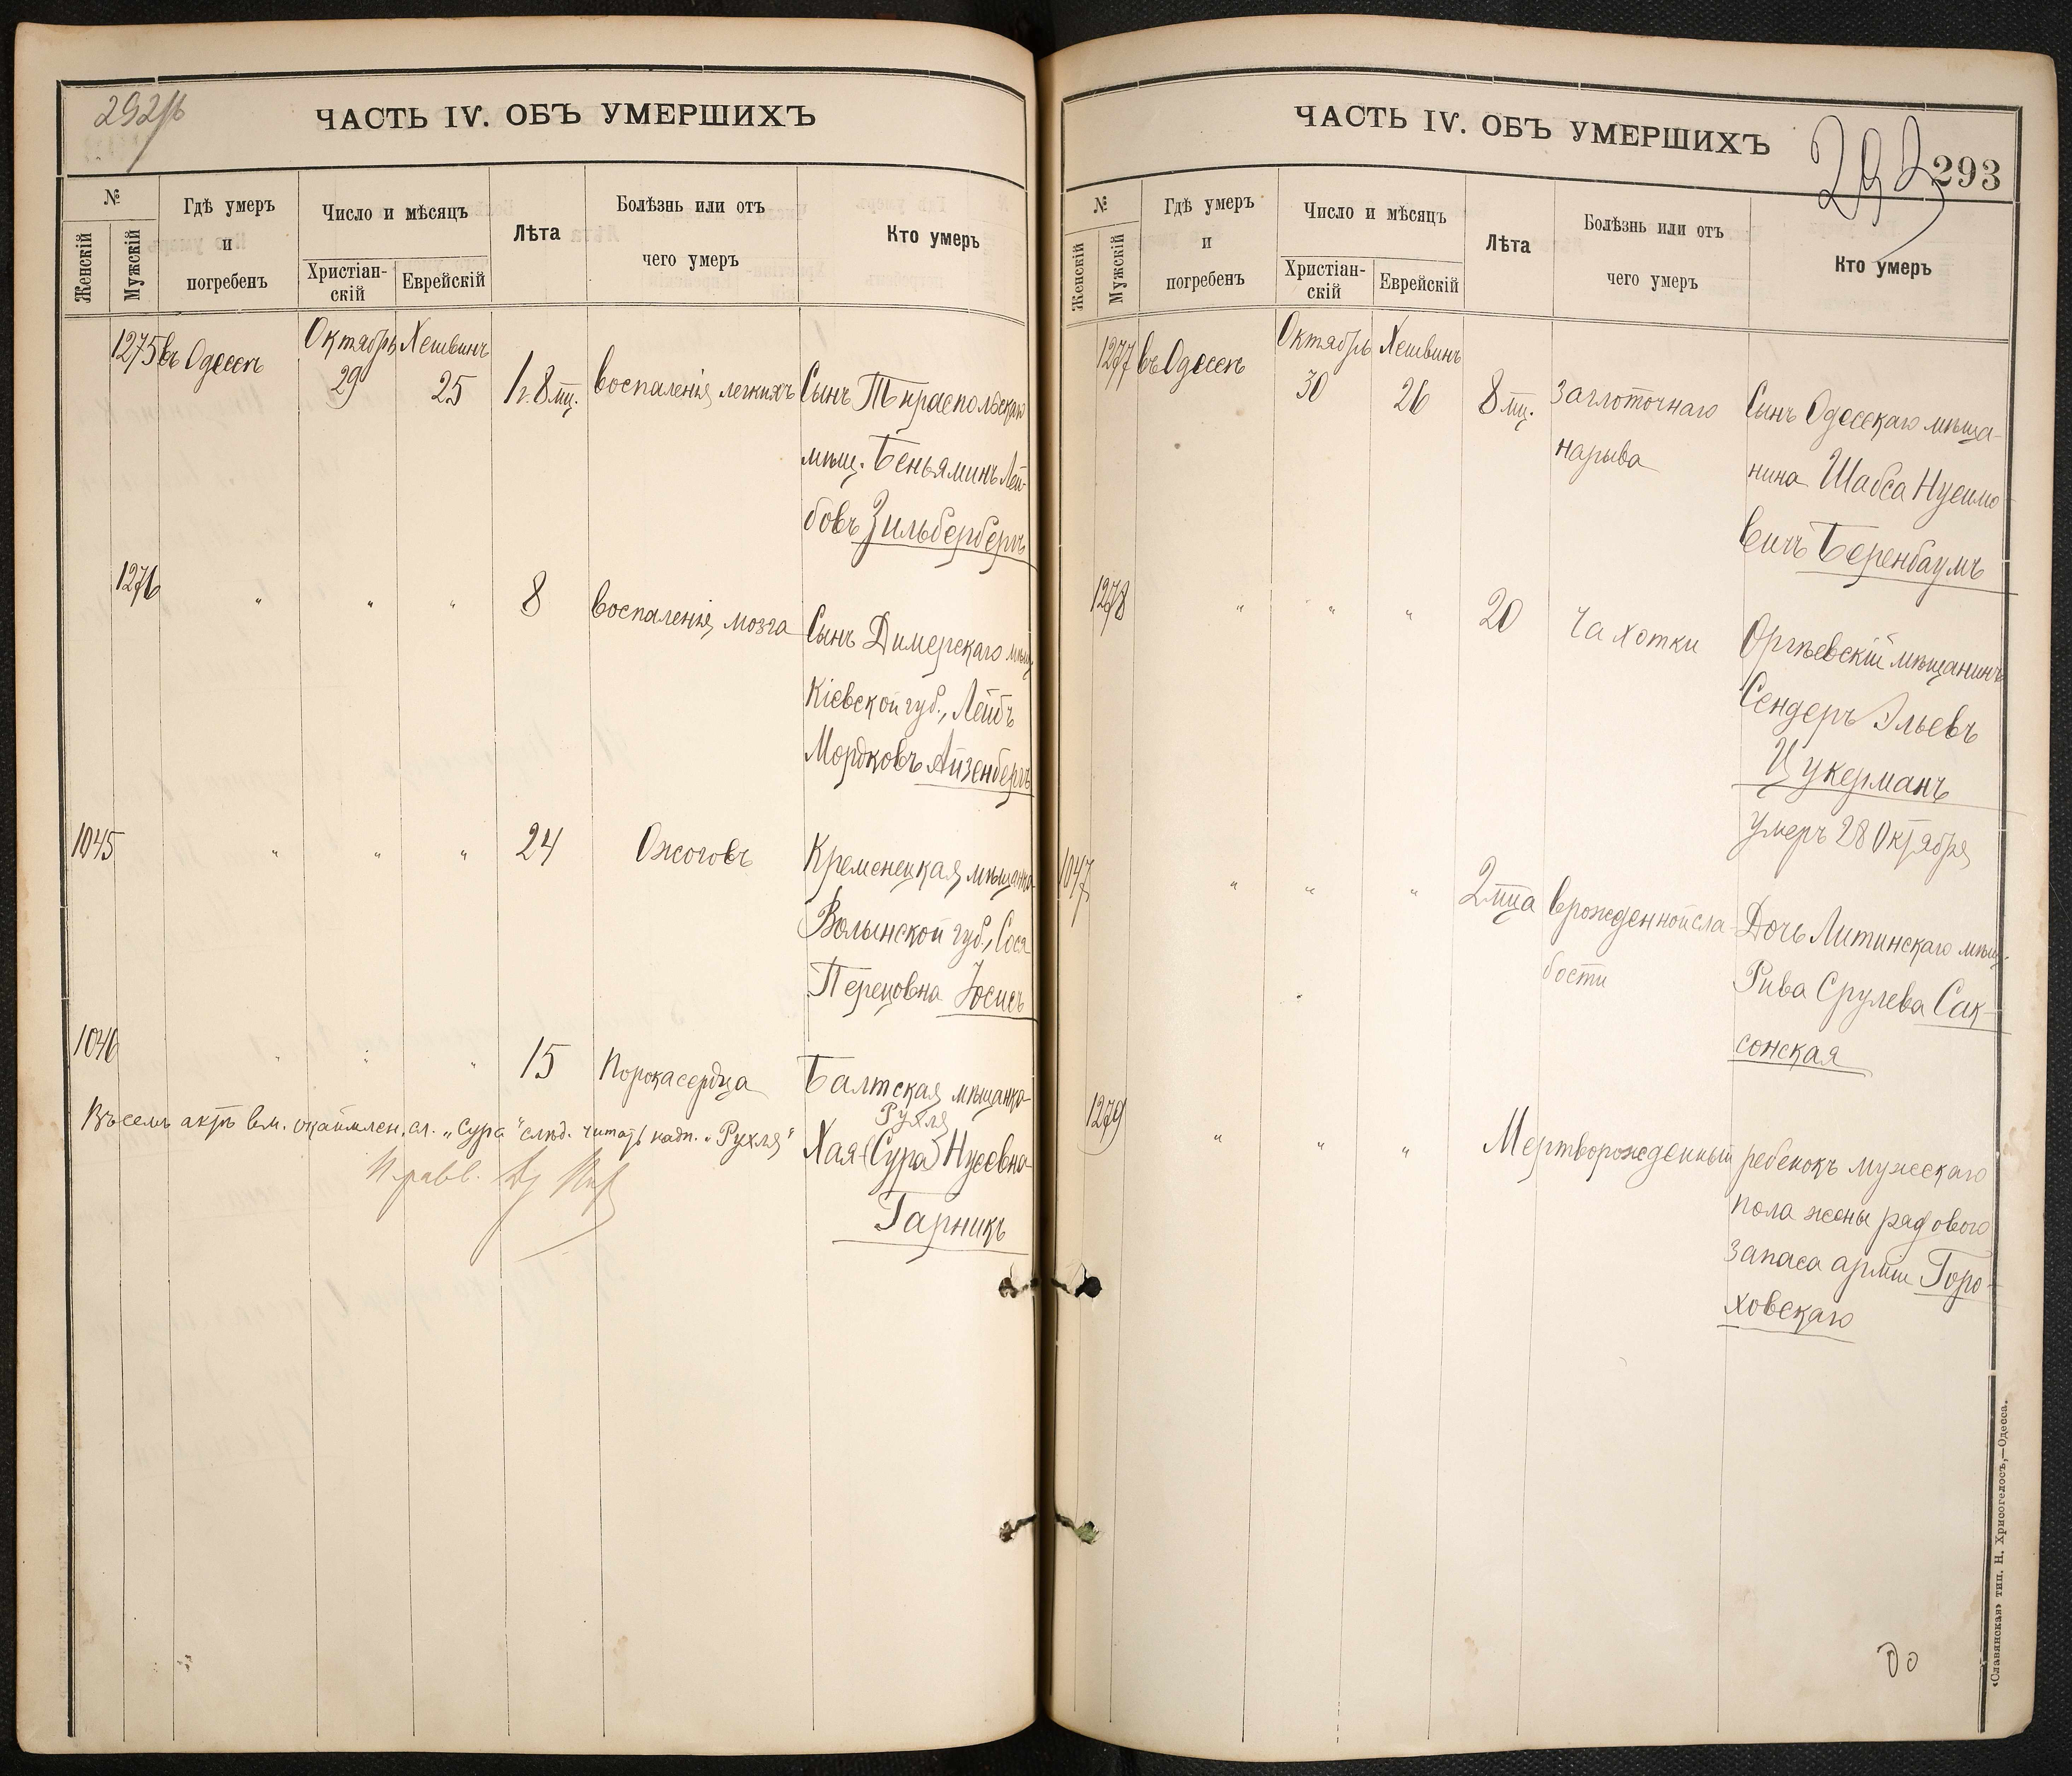 292 об
ЧАСТЬ IV. ОБЪ УМЕРШИХЪ
№
Женскій
Мужскій
Гдѣ умеръ
и
погребенъ
Число и мѣсяцъ
Христіан-
скій
Еврейскій
Лѣта
Болѣзнь или отъ
чего умеръ
Кто умеръ
1275 въ Одессѣ Октябрь Хешвинъ
29 25 1 г. 8 мц. воспаленія легкихъ Сынъ Тираспольскаго
мѣщ. Беньяминъ Лей-
бовъ Зильбербергъ
1276 " " " 8 воспаленія мозга Сынъ Димерскаго мѣщ.
Кіевской губ., Лейбъ
Мордковъ Айзенбергъ
1045 " " " 24 Ожоговъ Кременецкая мѣщанка
Волынской губ., Сося
Перецовна Юсисъ
1046 " " " 15 Порока сердца Балтская мѣщанка
Рухля
Въ семъ актѣ вм. окаймлен. сл. „Сура" слѣд. читать надп. „Рухля"
Хая (Сура) Нусевна
Гарникъ
ЧАСТЬ IV. ОБЪ УМЕРШИХЪ
293
293
№
Женскій
Мужскій
Гдѣ умеръ
и
погребенъ
Число и мѣсяцъ
Христіан-
скій
Еврейскій
Лѣта
Болѣзнь или отъ
чего умеръ
Кто умеръ
1277 въ Одессѣ Октябрь Хешвинъ
30 26 8 мц. заглоточнаго Сынъ Одесскаго мѣща-
нарыва нина Шабса Нусимо-
вичъ Беренбаумъ
1278 " " " 20 Чахотки Оргѣевскій мѣщанинъ
Сендеръ Эльевъ
Цукерманъ
умеръ 28 Октября
1047 " " " 2 мца врожденной сла- Дочь Литинскаго мѣщ.
бости Рива Срулева Сак-
сонская
1279 " " " Мертворожденный ребенокъ мужескаго
пола жены рядового
запаса арміи Горо-
ховскаго
«Славянская» тип. Н. Хрисогелосъ,—Одесса.